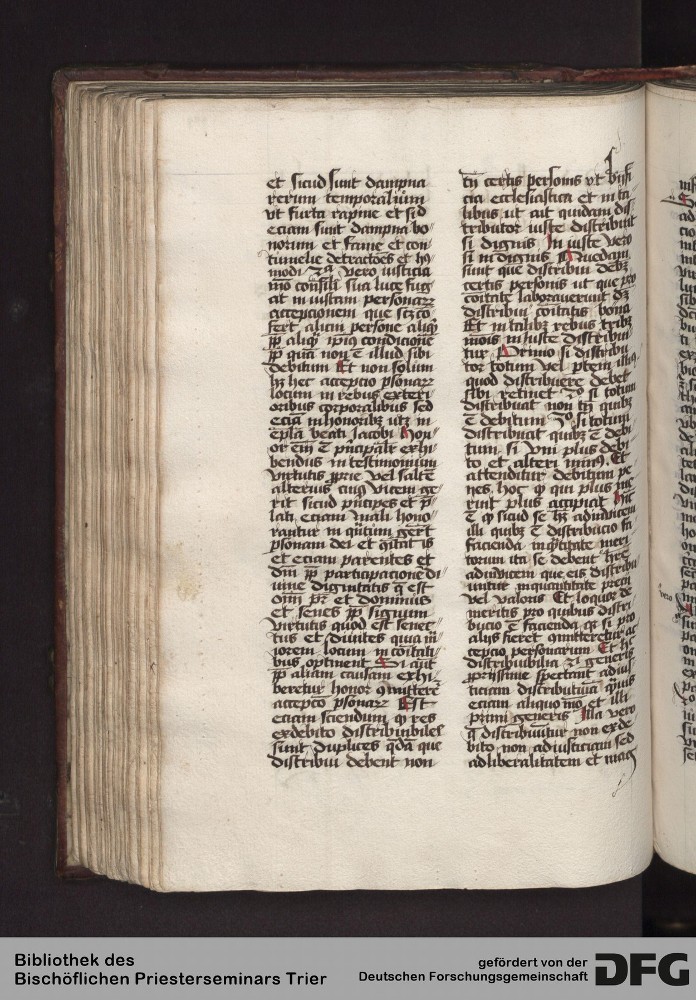 et sicud sunt dampna
rerum temporalium
vt furta rapine et sid
eciam sunt dampna bo
norum et fame et con
tumelie detractões et hꝰ
modi vero iusticia
mō consili sua luce fug
at in iustam personarꝝ
accepcionem que
fert alicui persone aliqͥ
ꝓp aliqͣ ipiꝰ condicionē
ꝓp quā non ē illud sibi
debitum Et non solum
hꝫ hec accepcio ꝑsonarꝝ
locum in rebus exteri
oribus corporalibus sed
eciā in honoribꝫ utꝫ in
epl̄a beati Jacobi Hon
or em̄ ē pͥncipalͤ exhi
bendus in testimonium
virtutis ꝓprie vel saltē
alterius cuiꝰ vicem ge
rit sicud pͥncipes et p̄
lati eciam mali hono
rantur in qͣntum gerūt
ꝑsonam dei et
et eciam parentes et
dnī ꝓp participacione di
uine dignitatis q̄ est
om̄ pr̄ et dominus
et senes ꝓp signum
virtutis quod est senec
tus et diuites quia m̄
iorem locum in cōitati
bus optinent Si aut̄
ꝓp aliam causam exhi
beretur honor 9mitteret᷑
accepcō ꝑsonarꝝ Est
eciam sciendum qꝫ res
ex debito distribuibiles
sunt duplices qd̄ā que
distribui debent non
tn̄ certis personis vt
cia ecclesiastica et in ta
libus ut ait quidam dis
tributor iuste distribuit
si dignis In iuste vero
si in dignis Quedam
sunt que distribui debēt
certis personis ut que pro
cōitate laborauerunt
distribui cōitatis bona
Et in talibꝫ rebus tribꝫ
mōis in iuste distribui
tur Primo si distribu
tor totum vel ꝑtem illiꝰ
quod distribuere debet
sibi retinet 2o si totum
distribuat non tn̄ quibꝫ
ē debitum 3o si totum
distribuat quibꝫ ē debi
tum si vni plus debi
to et alteri minꝰ Et
attenditur debitum pe
nes hoc qꝫ qui plus me
rint plus accipiat Hīc
ē qꝫ sicud se hn̄t adinuicem
illi quibꝫ ē distribucio fa
cienda in qͣntitate meri
torum ita se debent hr̄e
adinuicem que eis distribu
untur in quantitate precii
vel valoris Et loquor de
meritis pro quibus distri
bucio ē facienda qꝛ si pro
alijs fieret 9mitteretur ac
cepcio personarum Et hec
distribuibilia generis
ꝓprijssime spectant ad ius
ticiam distributiuā quīs
eciam aliquo mō et illi
primi generis Illa vero
q̄ distribuuntur non ex de
bito non ad iusticiam sed
ad liberalitatem et mag
Bibliothek des
Bischöflichen Priesterseminars Trier
gefördert von der
Deutschen Forschungsgemeinschaft
DFG